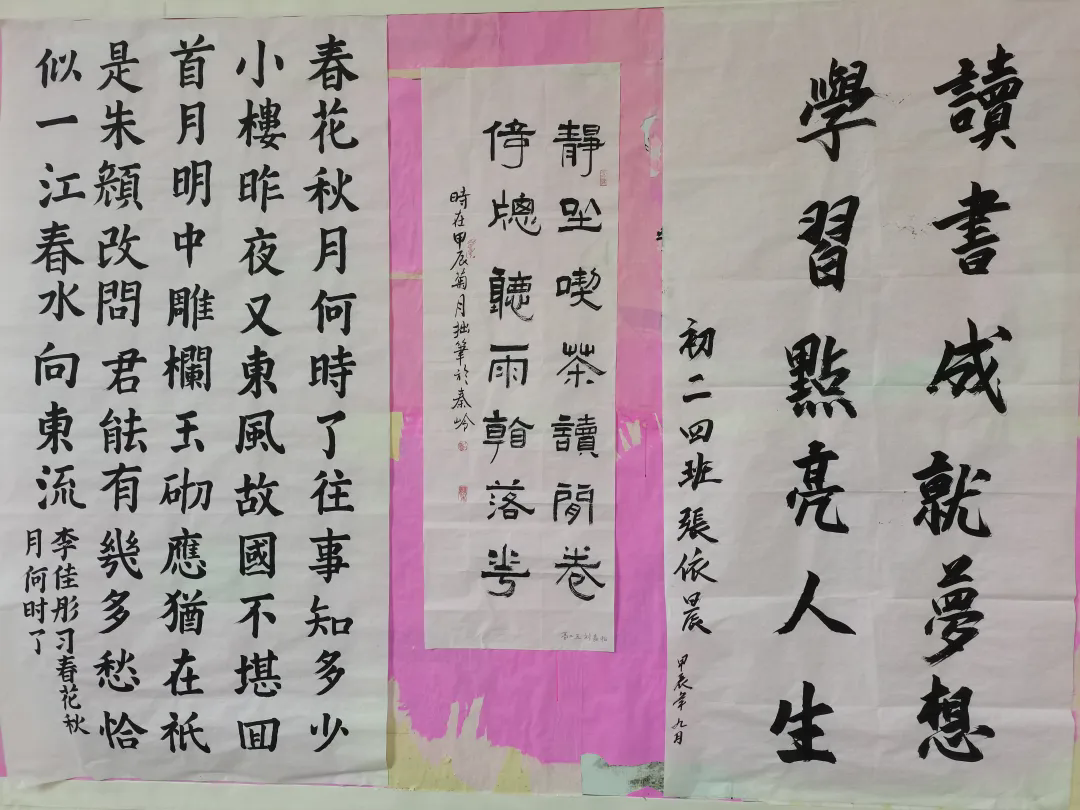 讀書成就夢想
學習點亮人生
初二四班張依晨 甲辰年九月
靜坐喫茶讀閒卷
倚牕聽雨翰落華
時在甲辰菊月拙筆於秦岭
春花秋月何時了往事知多少
小樓昨夜又東風故國不堪囬
首月明中雕欄玉砌應猶在祇
是朱顏改問君能有幾多愁恰
似一江春水向東流
李佳彤习春花秋
月何时了